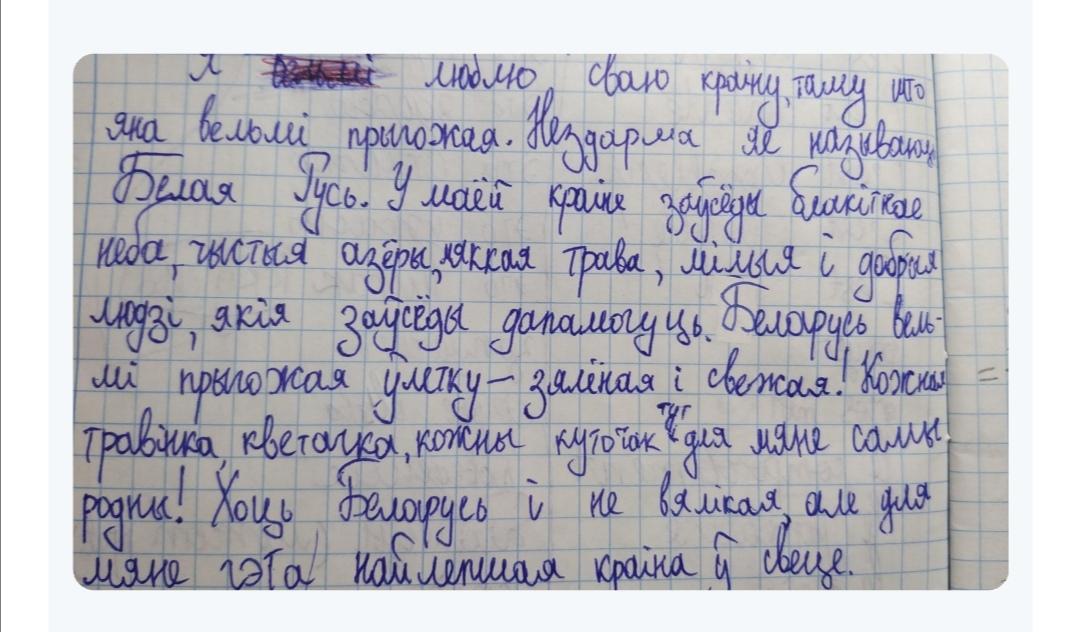 Я люблю сваю краіну, таму што
яна вельмі прыгожая. Нездарма яе называюць
Белая Русь. У маёй краіне заўсёды блакітнае
неба, чыстыя азёры, мяккая трава, мілыя і добрыя
людзі, якія заўсёды дапамогуць. Беларусь вель-
мі прыгожая ўлетку — зялёная і свежая! Кожная
травінка, кветачка, кожны куточак тут для мяне самы
родны! Хоць Беларусь і не вялікая, але для
мяне гэта найлепшая краіна ў свеце.